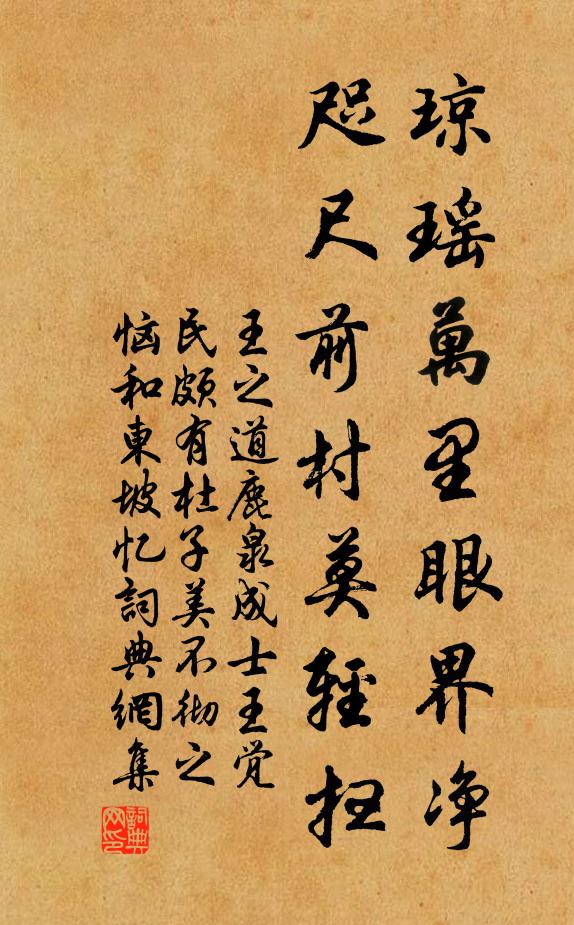 琼瑶萬里眼界净
咫尺前村莫輕扫
王之道鹿泉成士王觉
民頗有杜子美不彻之
恼和東坡忆詞典網集
詞典网印